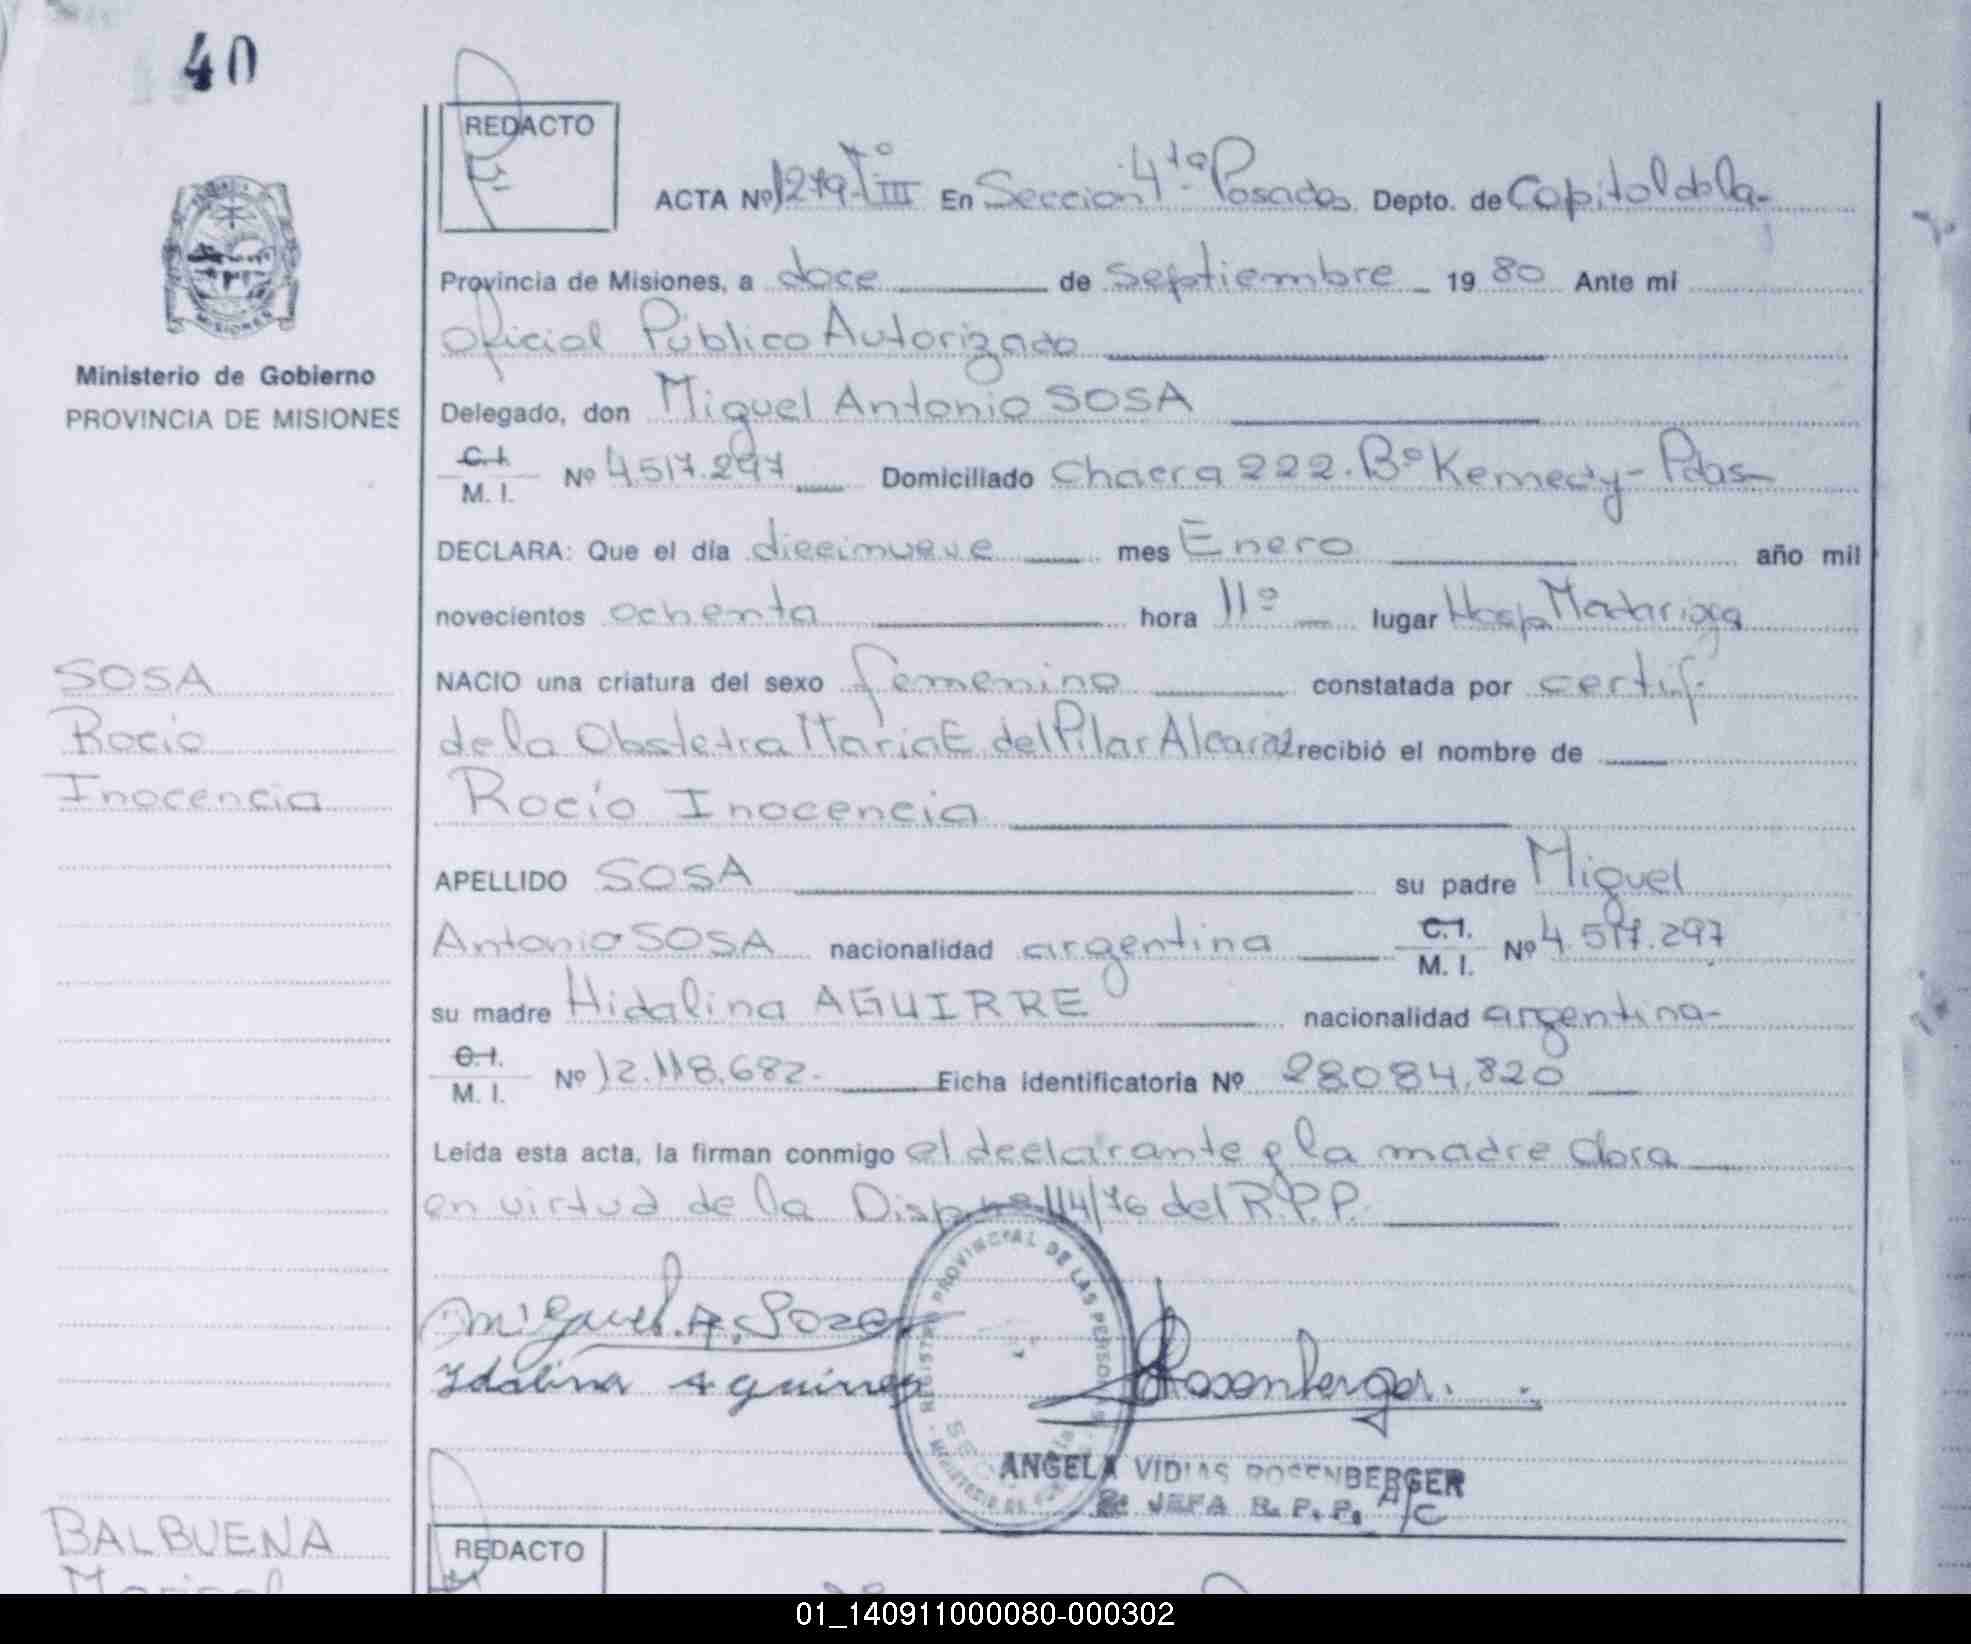 40
REDACTO
ACTA Nº 1279-Tº III En Sección 4ta Posadas Depto. de Capital de la-
Provincia de Misiones, a doce de Septiembre 19 80 Ante mi
Oficial Público Autorizado
MISIONES
Ministerio de Gobierno
PROVINCIA DE MISIONES
Delegado, don Miguel Antonio SOSA
C.I.
M. I. Nº 4.517.297 Domiciliado Chacra 222. Bº Kennedy - Pdas-
DECLARA: Que el día diecinueve mes Enero año mil
novecientos ochenta hora 11º lugar Hosp Madariaga
SOSA
Rocío
Inocencia
NACIO una criatura del sexo femenino constatada por certif.
de la Obstetra María E. del Pilar Alcaraz recibió el nombre de
Rocío Inocencia
APELLIDO SOSA su padre Miguel
Antonio SOSA nacionalidad argentina C.I.
M. I. Nº 4.517.297
su madre Hidalina AGUIRRE nacionalidad argentina-
C.I.
M. I. Nº 12.118.682- Ficha identificatoria Nº 28.084.820
Leída esta acta, la firman conmigo el declarante y la madre
en virtud de la Disp. nº 114/76 del R.P.P.
Miguel. A. Soza
Idalina Aguirre
Rosenberger.
REGISTRO PROVINCIAL DE LAS PERSONAS
ANGELA VIDIAS ROSENBERGER
JEFA R. P. P. A/C
BALBUENA
Marisel
REDACTO
01_140911000080-000302